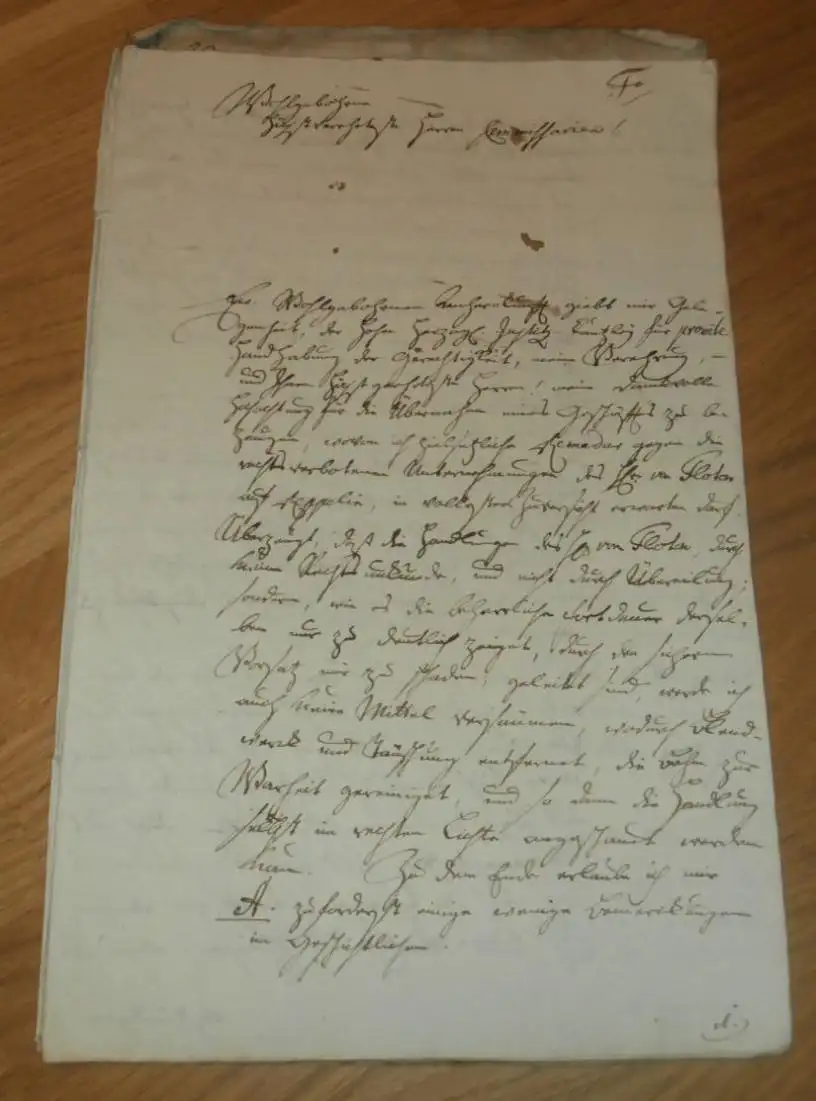 Wohlgebohrne
Höchstverehrteste Herren Commissarien!
Ew. Wohlgebohrnen giebt mir Gele-
genheit, der Hohen Herzogl. Justitz Cantzley für prompte
Handhabung der Gerechtigkeit, meine Verehrung, –
und Ihnen Höchstgeehrteste Herren! meine dankvolle
Hochachtung für die Übernahme eines Geschäfts zu be-
zeugen, wovon ich gegen die
rechtsverbotenen Unternehmungen des Hn von Flotow
auf Kopplin, in vollester Zuversicht erwarten darf.
Überzeugt, daß die Handlungen des Hn von Flotow, durch
keine Rechtsunkunde, und nicht durch Übereilung;
sondern, wie es die beharrliche Fortdauer dersel-
ben nur zu deutlich zeiget, durch den
Vorsatz mir zu schaden, geleitet sind, werde ich
auch keine Mittel versäumen, wodurch Blend-
werk und Täuschung entfernet, die Bahn zur
Warheit gereiniget, und so dann die Handlung
selbst im rechten Lichte angeschauet werden
kann. Zu dem Ende erlaube ich mir
A. zuforderst einige wenige Bemerkungen
im Geschichtlichen.